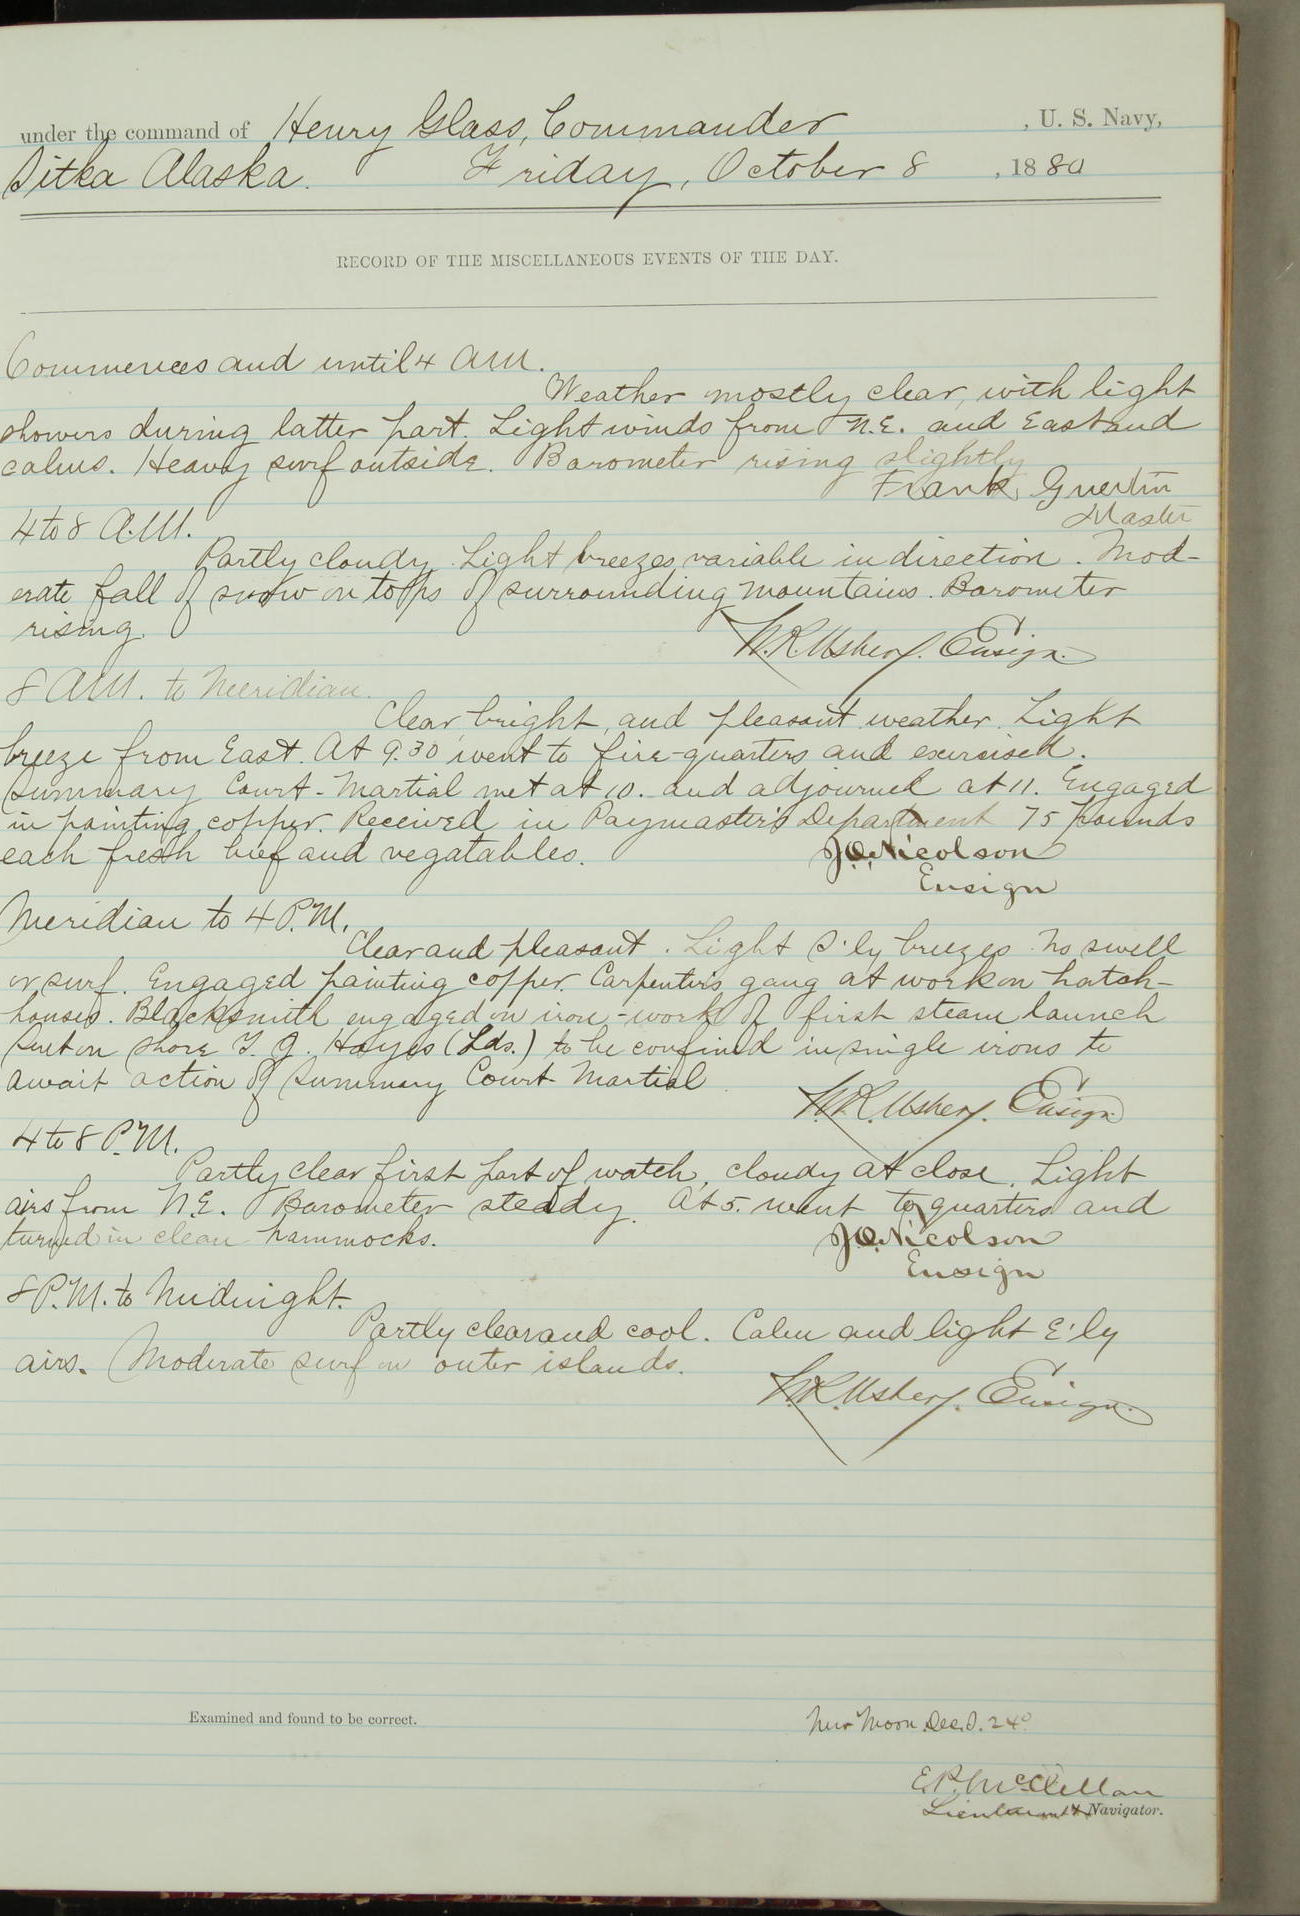 under the command of Henry Glass, Commander , U. S. Navy,
Sitka Alaska. Friday, October 8 , 1880
RECORD OF THE MISCELLANEOUS EVENTS OF THE DAY.
Commences and until 4 AM.
Weather mostly clear, with light
showers during latter part. Light winds from N.E. and East and
calms. Heavy surf outside. Barometer rising slightly
Frank Guertin
Master
4 to 8 A.M.
Partly cloudy. Light breezes, variable in direction. Mod-
erate fall of snow on tops of surrounding mountains. Barometer
rising.
W.R. Usher, Ensign.
8 AM. to Meridian.
Clear, bright, and pleasant weather. Light
breeze from East. At 9.30 went to fire-quarters and exercised.
Summary Court-Martial met at 10. and adjourned at 11. Engaged
in painting copper. Received in Paymaster's Department 75 pounds
each fresh beef and vegatables.
J.O. Nicolson
Ensign
Meridian to 4 P.M.
Clear and pleasant. Light S'ly breezes. No swell
or surf. Engaged painting copper. Carpenter's gang at work on hatch-
houses. Blacksmith engaged on iron-work of first steam launch
Sent on shore T. J. Hayes (Lds.) to be confined in single irons to
await action of Summary Court Martial
W.R. Usher, Ensign
4 to 8 P.M.
Partly clear first part of watch, cloudy at close. Light
airs from N.E. Barometer steady. At 5. went to quarters and
turned in clean hammocks.
J.O. Nicolson
Ensign
8 P.M. to Midnight.
Partly clear and cool. Calm and light E'ly
airs. Moderate surf on outer islands.
W.R. Usher, Ensign.
Examined and found to be correct.
New Moon. Dec. 24°
E.P. McClellan
Lieutenant & Navigator.